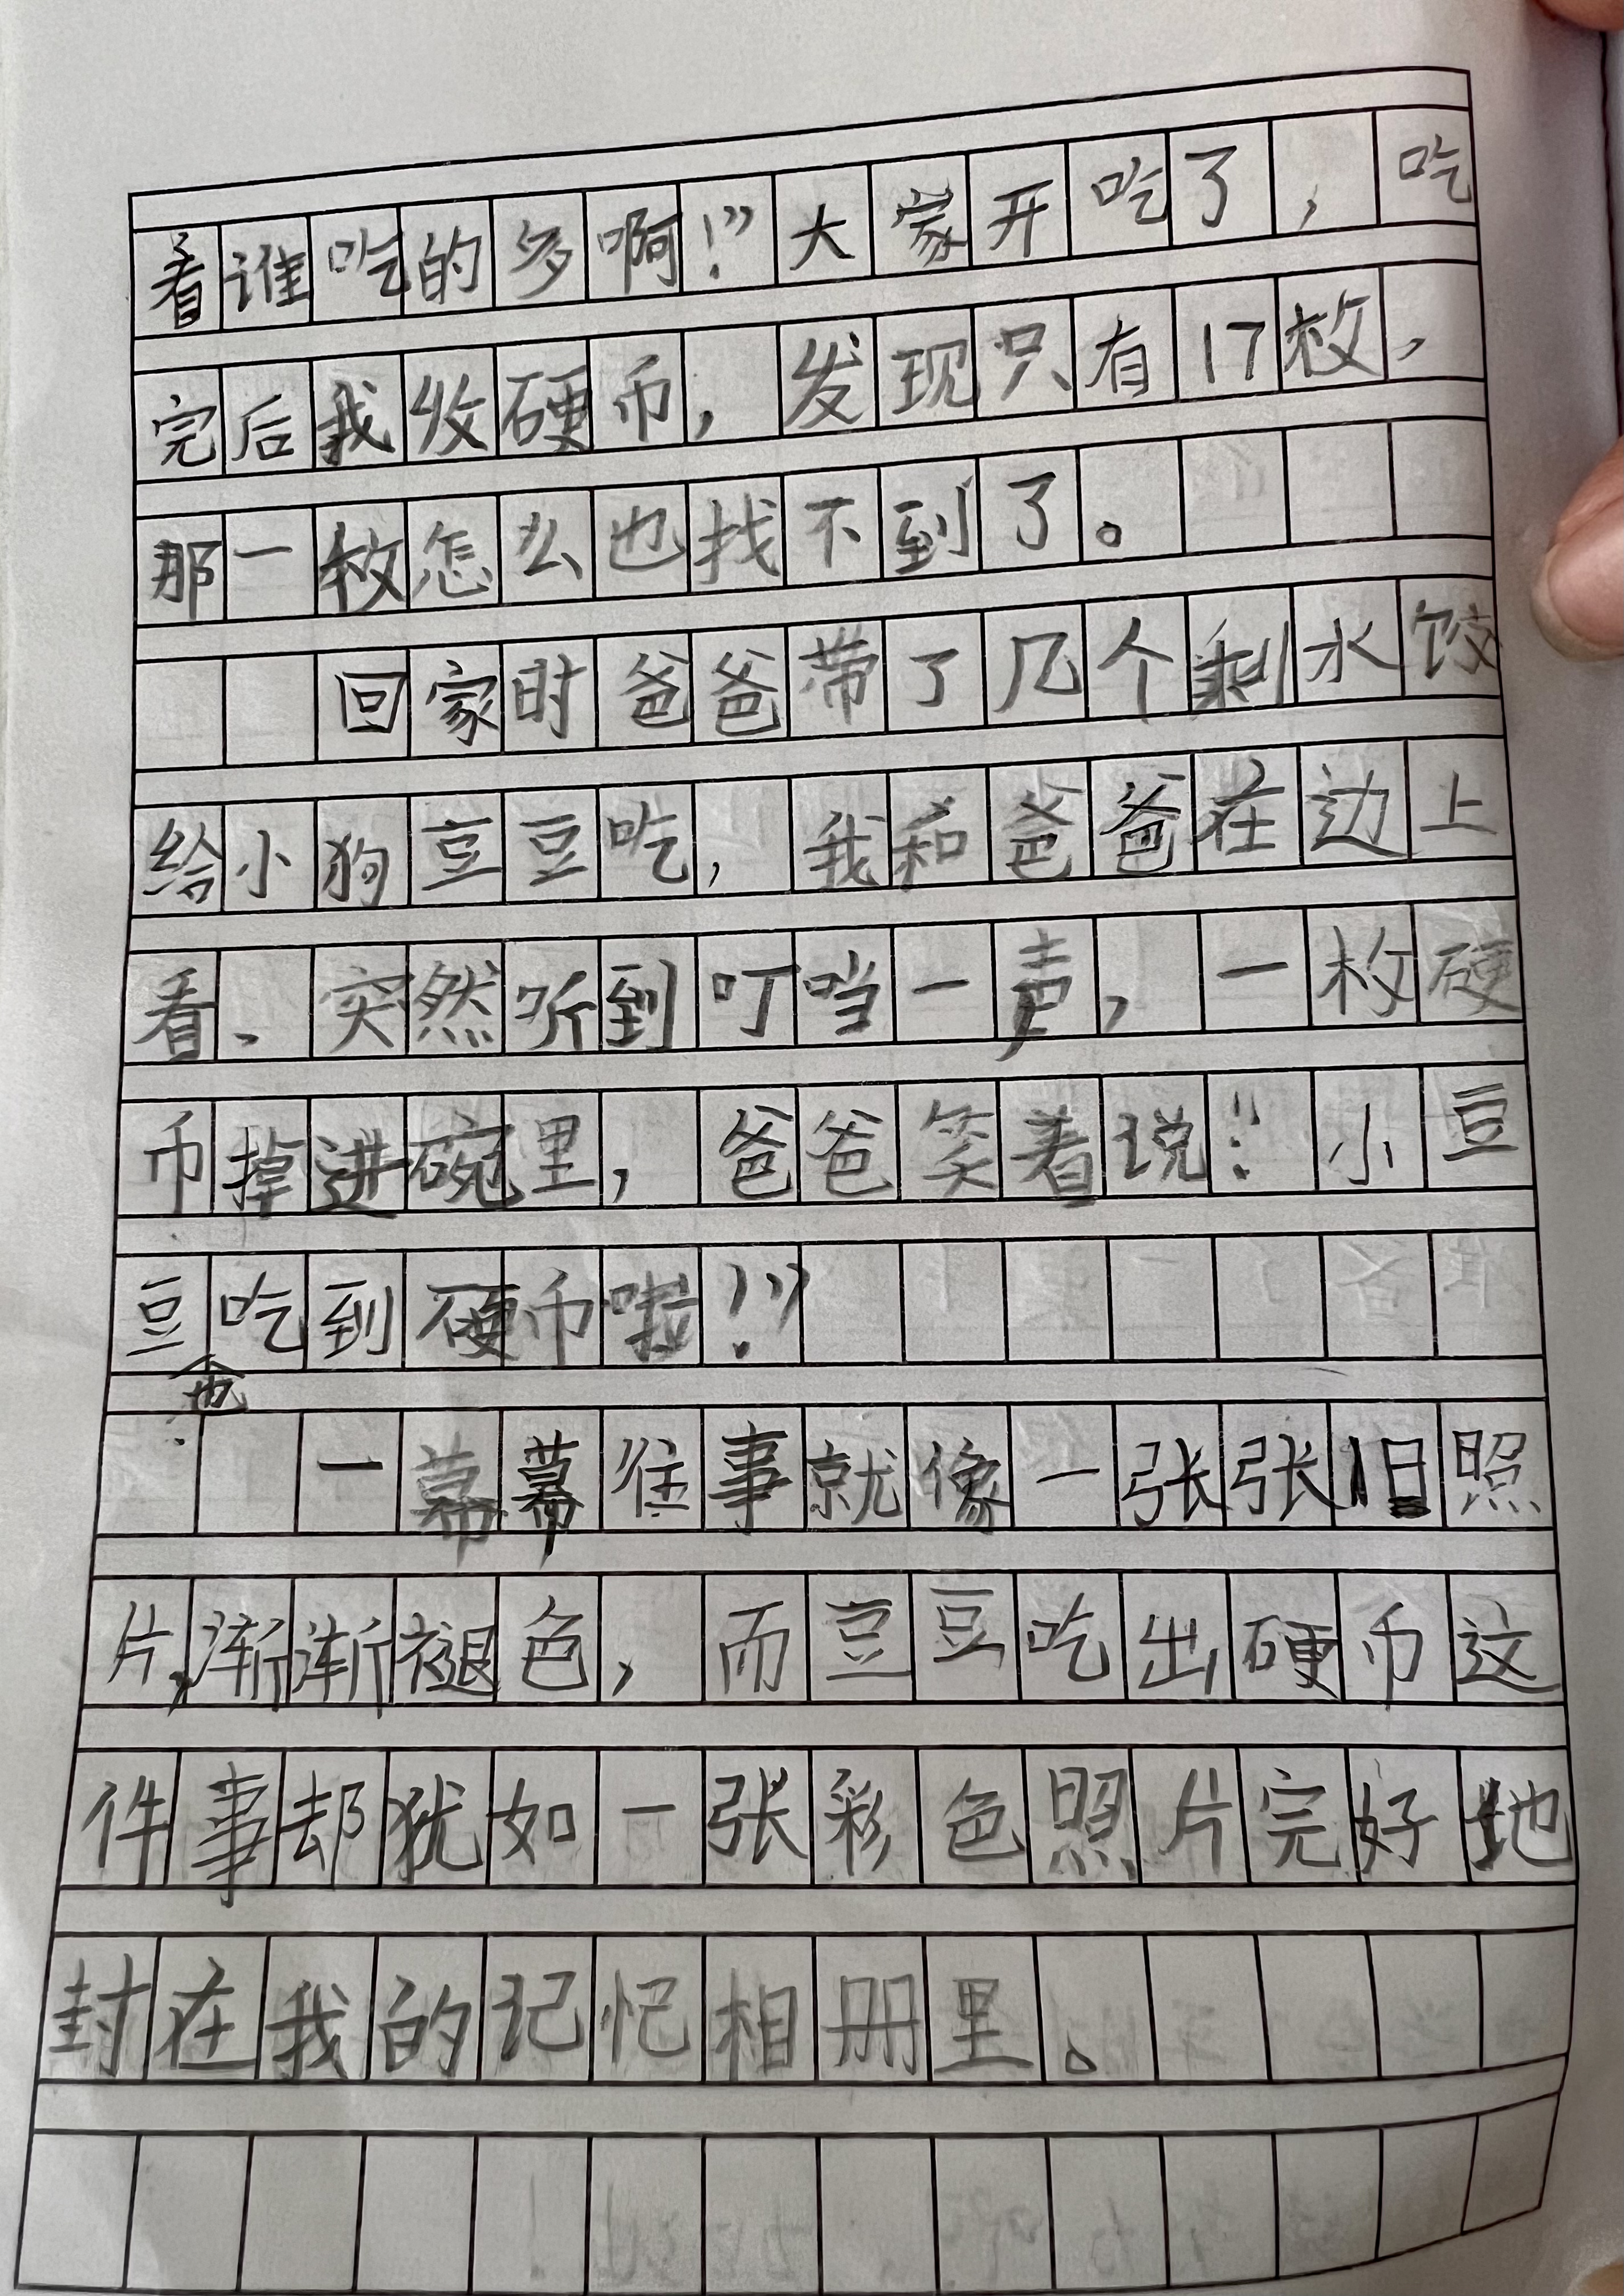 看谁吃的多啊！”大家开吃了，吃
完后我收硬币，发现只有17枚，
那一枚怎么也找不到了。
回家时爸爸带了几个剩水饺
给小狗豆豆吃，我和爸爸在边上
看、突然听到叮当一声，一枚硬
币掉进碗里，爸爸笑着说：“小豆
豆吃到硬币啦！”
也
一幕幕往事就像一张张旧照
片，渐渐褪色，而豆豆吃出硬币这
件事却犹如一张彩色照片完好地
封在我的记忆相册里。